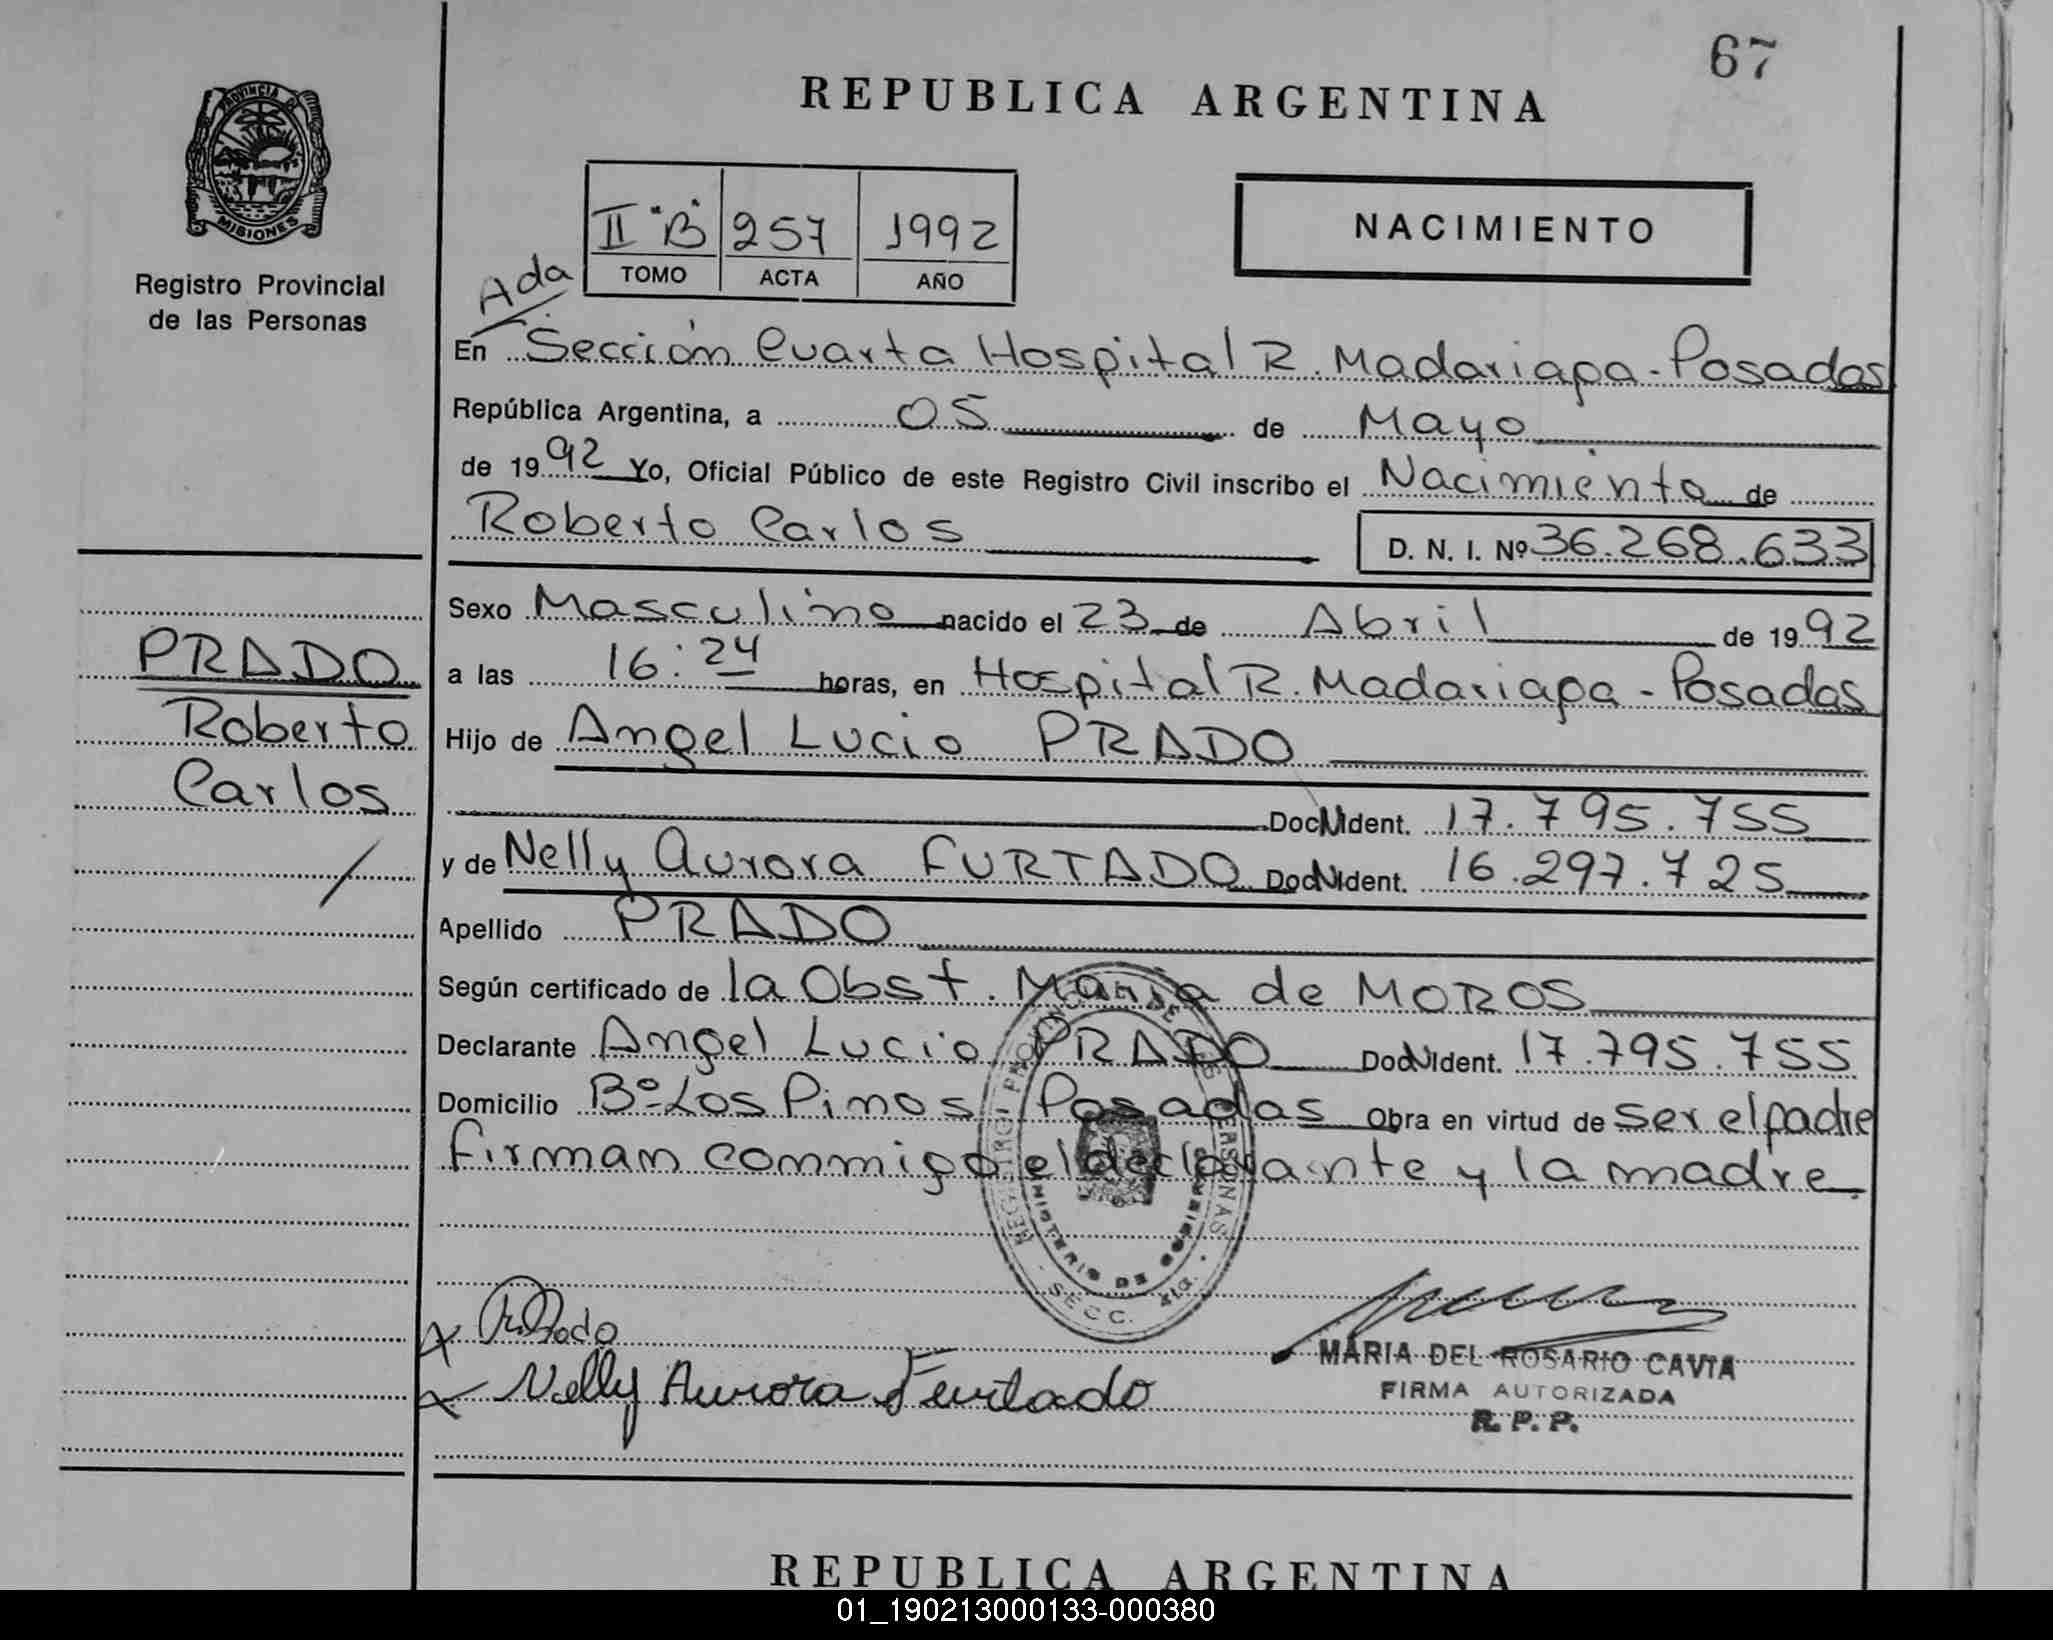 67
REPUBLICA ARGENTINA
PROVINCIA DE
MISIONES
Registro Provincial
de las Personas
II "B" 257 1992
TOMO ACTA AÑO
NACIMIENTO
Ada
En Sección Cuarta Hospital R. Madariaga - Posadas
República Argentina, a 05 de Mayo
de 1992 Yo, Oficial Público de este Registro Civil inscribo el Nacimiento de
Roberto Carlos D. N. I. Nº 36.268.633
Sexo Masculino nacido el 23 de Abril de 1992
a las 16:24 horas, en Hospital R. Madariaga - Posadas
Hijo de Angel Lucio PRADO
Doc. Ident. 17.795.755
y de Nelly Aurora FURTADO Doc. Ident. 16.297.725
Apellido PRADO
Según certificado de la Obst. Maria de MOROS
Declarante Angel Lucio PRADO Doc. Ident. 17.795.755
Domicilio Bº Los Pinos Posadas Obra en virtud de ser el padre
firman conmigo el declarante y la madre
PRADO
Roberto
Carlos
REGISTRO PROVINCIAL DE LAS PERSONAS
MINISTERIO DE GOBIERNO
SECC. 4ta.
Prado
Nelly Aurora Furtado
MARIA DEL ROSARIO CAVIA
FIRMA AUTORIZADA
R. P. P.
REPUBLICA ARGENTINA
01_190213000133-000380